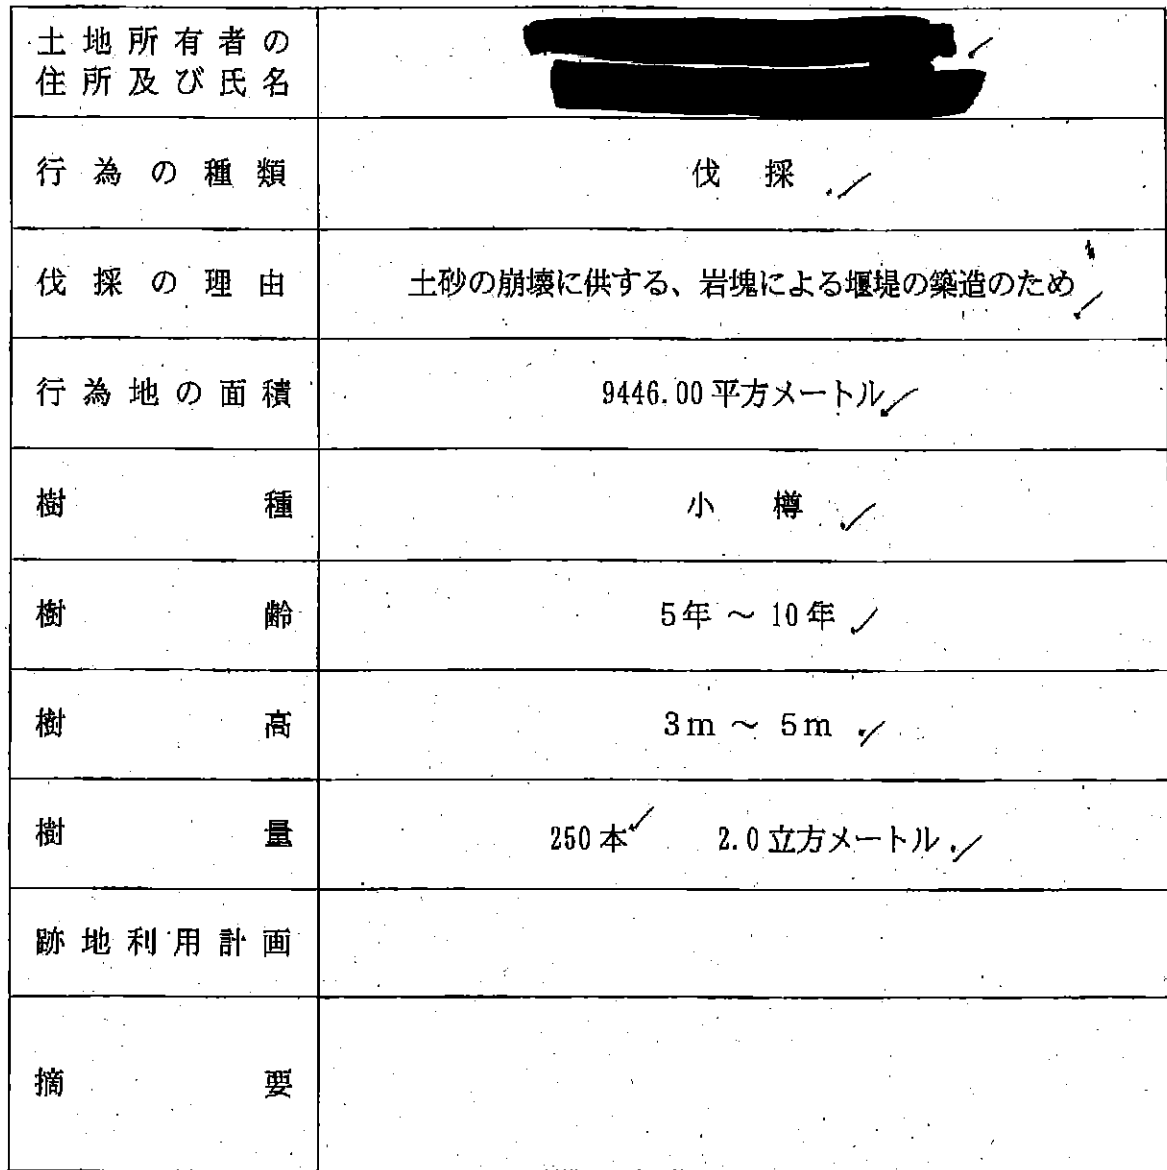 土地所有者の
住所及び氏名
行為の種類 伐採
伐採の理由 土砂の崩壊に供する、岩塊による堰堤の築造のため
行為地の面積 9446.00平方メートル
樹種 小樽
樹齢 5年 ～ 10年
樹高 3m ～ 5m
樹量 250本 2.0立方メートル
跡地利用計画
摘要